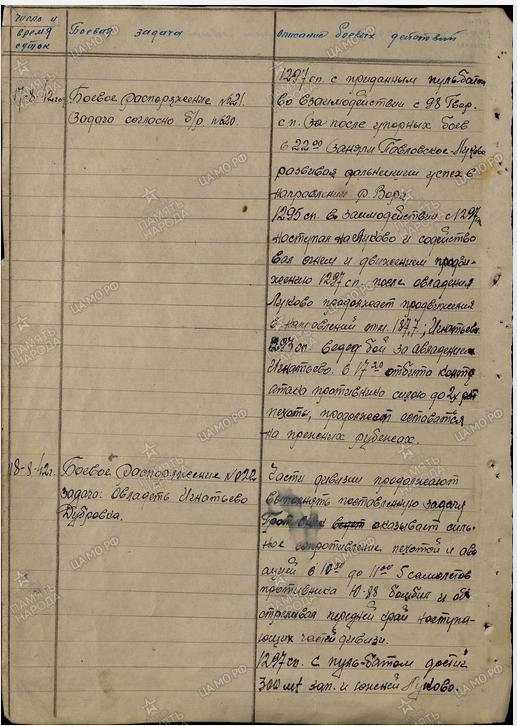 Число и
время
суток
Боевая задача
Описание боевых действий
17-8-42г.
Боевое Распоряжение №21.
Задача согласно б/р. №20.
1297 сп. с приданным пуль-батом
во взаимодействии с 98 Твар.
с.п. после упорных боев
в 22 00 заняли Павловское-Луково
развивая дальнейший успех в
направлении р. Воря,
1295 сп. во заимодействии с 1297 сп
наступал на Луково и содейство
вал огнем и движением продви-
жению 1297 сп, после овладения
Луково продолжает продвижения
в направлений отм. 187,7; Игнатьево.
1293 сп. ведет бой за овладением
Игнатьево. в 17 30 отбита контр
атака противника силою до 2х рот
пехоты, продолжает оставатся
на прежних рубежах.
18-8-42г.
Боевое Распоряжение №22
задача: Овладеть Игнатьево
Дубровка.
Части дивизии продолжают
выполнять поставленную задачу
Против ведет оказывает силь-
ное сопротивление пехотой и ави
ацией с 10 30 до 11 00 5 самолетов
противника Ю-88 бомбил и об
стреливал передний край наступа-
ющих частей дивизи.
1297 сп. с пуль-батом достиг
300 мт зап. и южней Луково.